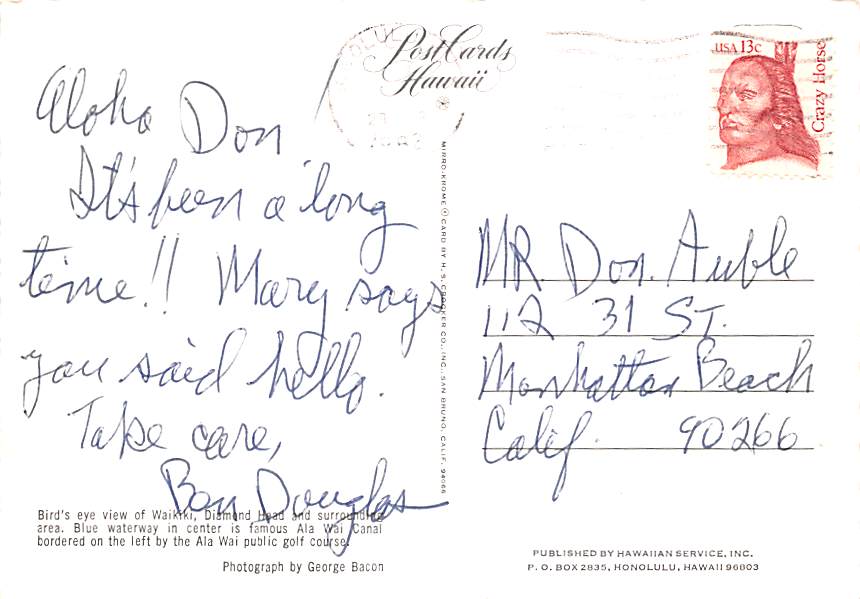 Post Cards
Hawaii
USA 13c
Crazy Horse
Aloha Don
It's been a long
time!! Mary says
you said hello.
Take care,
Douglas
MR Don. Auble
112 31 ST.
Manhattan Beach
Calif. 90266
MIRRO-KROME ® CARD BY H. S. CROCKER CO., INC., SAN BRUNO, CALIF. 94066
Bird's eye view of Waikiki, Diamond Head and surrounding
area. Blue waterway in center is famous Ala Wai Canal
bordered on the left by the Ala Wai public golf course.
Photograph by George Bacon
PUBLISHED BY HAWAIIAN SERVICE, INC.
P. O. BOX 2835, HONOLULU, HAWAII 96803